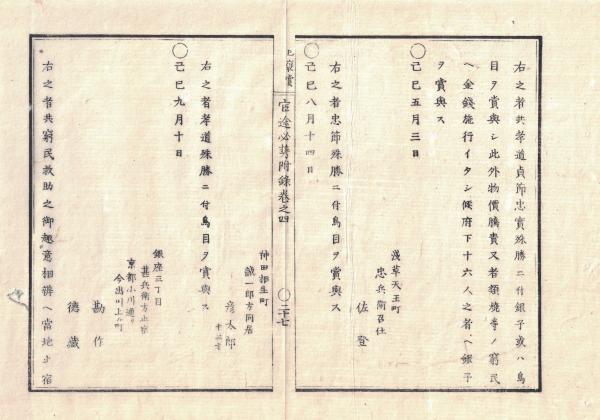 右之者共孝道貞節忠實殊勝ニ付銀子或ハ鳥
目ヲ賞與シ此外物價騰貴又者類燒等ノ窮民
ヘ金錢施行イタシ候府下十六人之者ヘ銀子
ヲ賞與ス
○己巳五月三日
淺草天王町
忠兵衞召仕
佐登
右之者忠節殊勝ニ付鳥目ヲ賞與ス
○己巳八月十四日
神田相生町
鐵一郎方同居
彦太郎
右之者孝道殊勝ニ付鳥目ヲ賞與ス
○己巳九月十日
銀座三丁目
甚兵衞方止宿
京都小川通リ
今出川上ル町
勘作
德藏
右之者共窮民救助之御趣意相辨ヘ當地止宿
官途必携附錄卷之四
○二十七